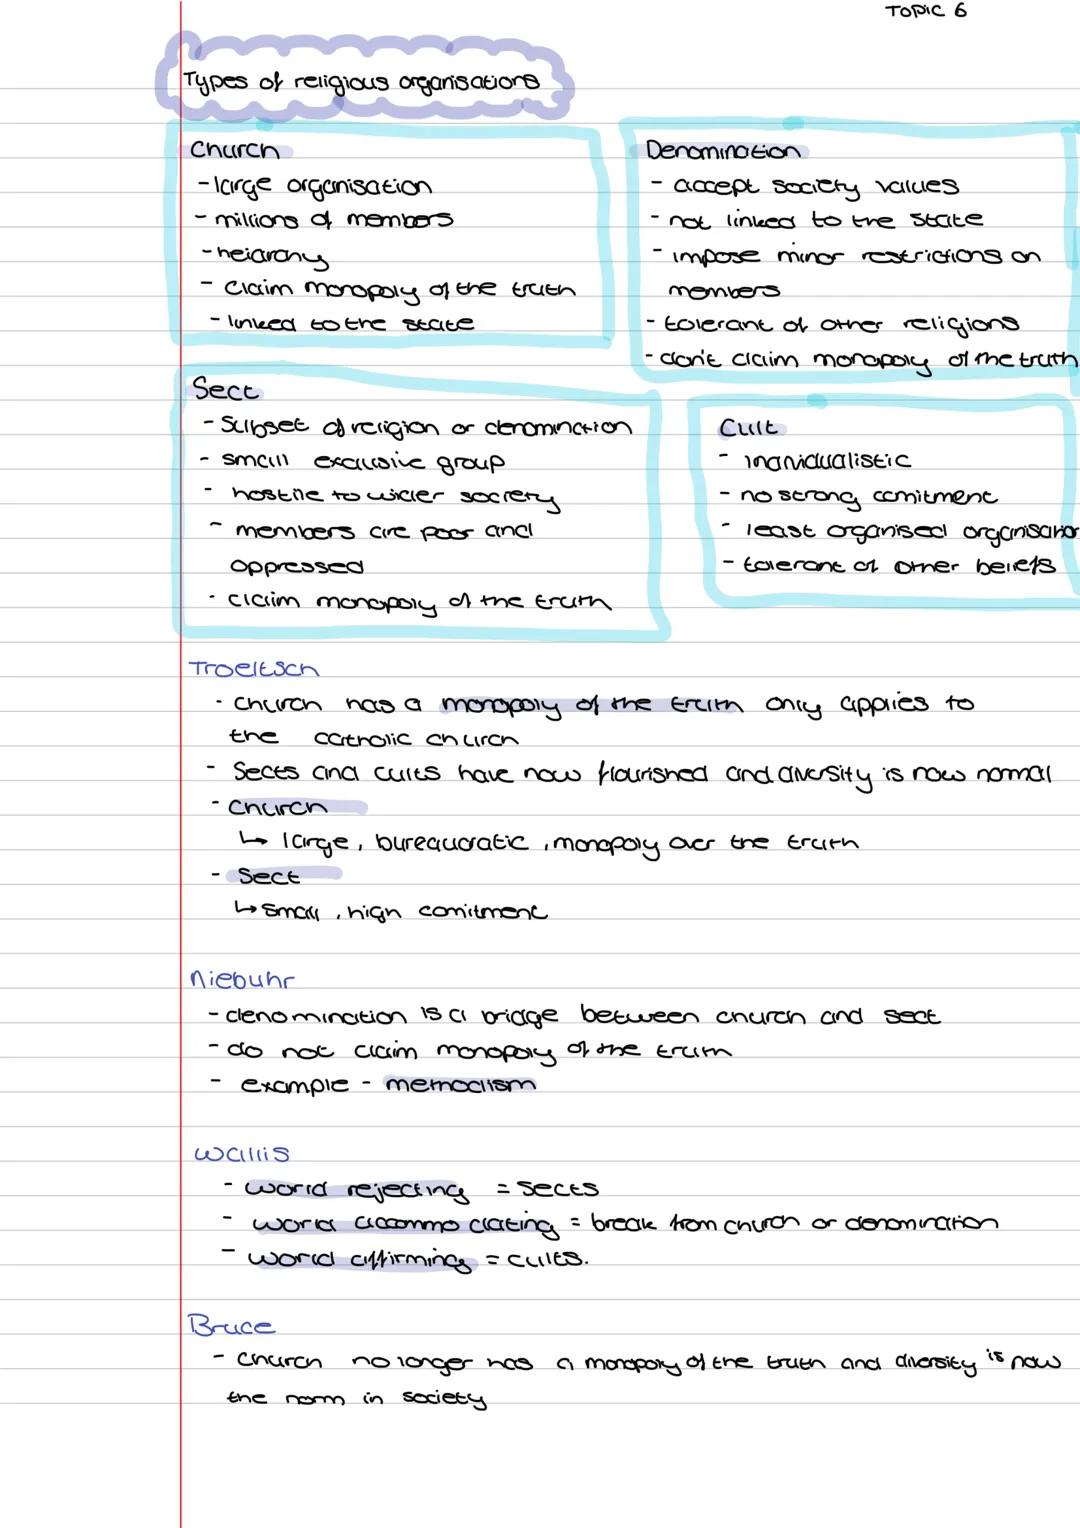 TOPIC 6
Types of religious organisations
Church
- large organisation
- millions of members
- heiarchy
- claim monopoly of the truth
- linked to the state
Denomination
- accept society values
- not linked to the state
- impose minor restrictions on
members
- tolerant of other religions
- don't claim monopoly of the truth
Sect
- Subset of religion or denomination
- small exclusive group
- hostile to wider society
- members are poor and
oppressed
- claim monopoly of the truth
Cult
- individualistic
- no strong comitment
- least organised organisation
- tolerant of other beliefs
Troeltsch
- church has a monopoly of the truth only applies to
the catholic church
- Sects and cults have now flourished and diversity is now normal
- church
↳ large, bureaucratic, monopoly over the truth
- Sect
↳ small, high comitment
Niebuhr
- denomination is a bridge between church and sect
- do not claim monopoly of the truth
- example - methodism
Wallis
- world rejecting = sects
- world accommodating = break from church or denomination
- world affirming = cults.
Bruce
- church no longer has a monopoly of the truth and diversity is now
the norm in society